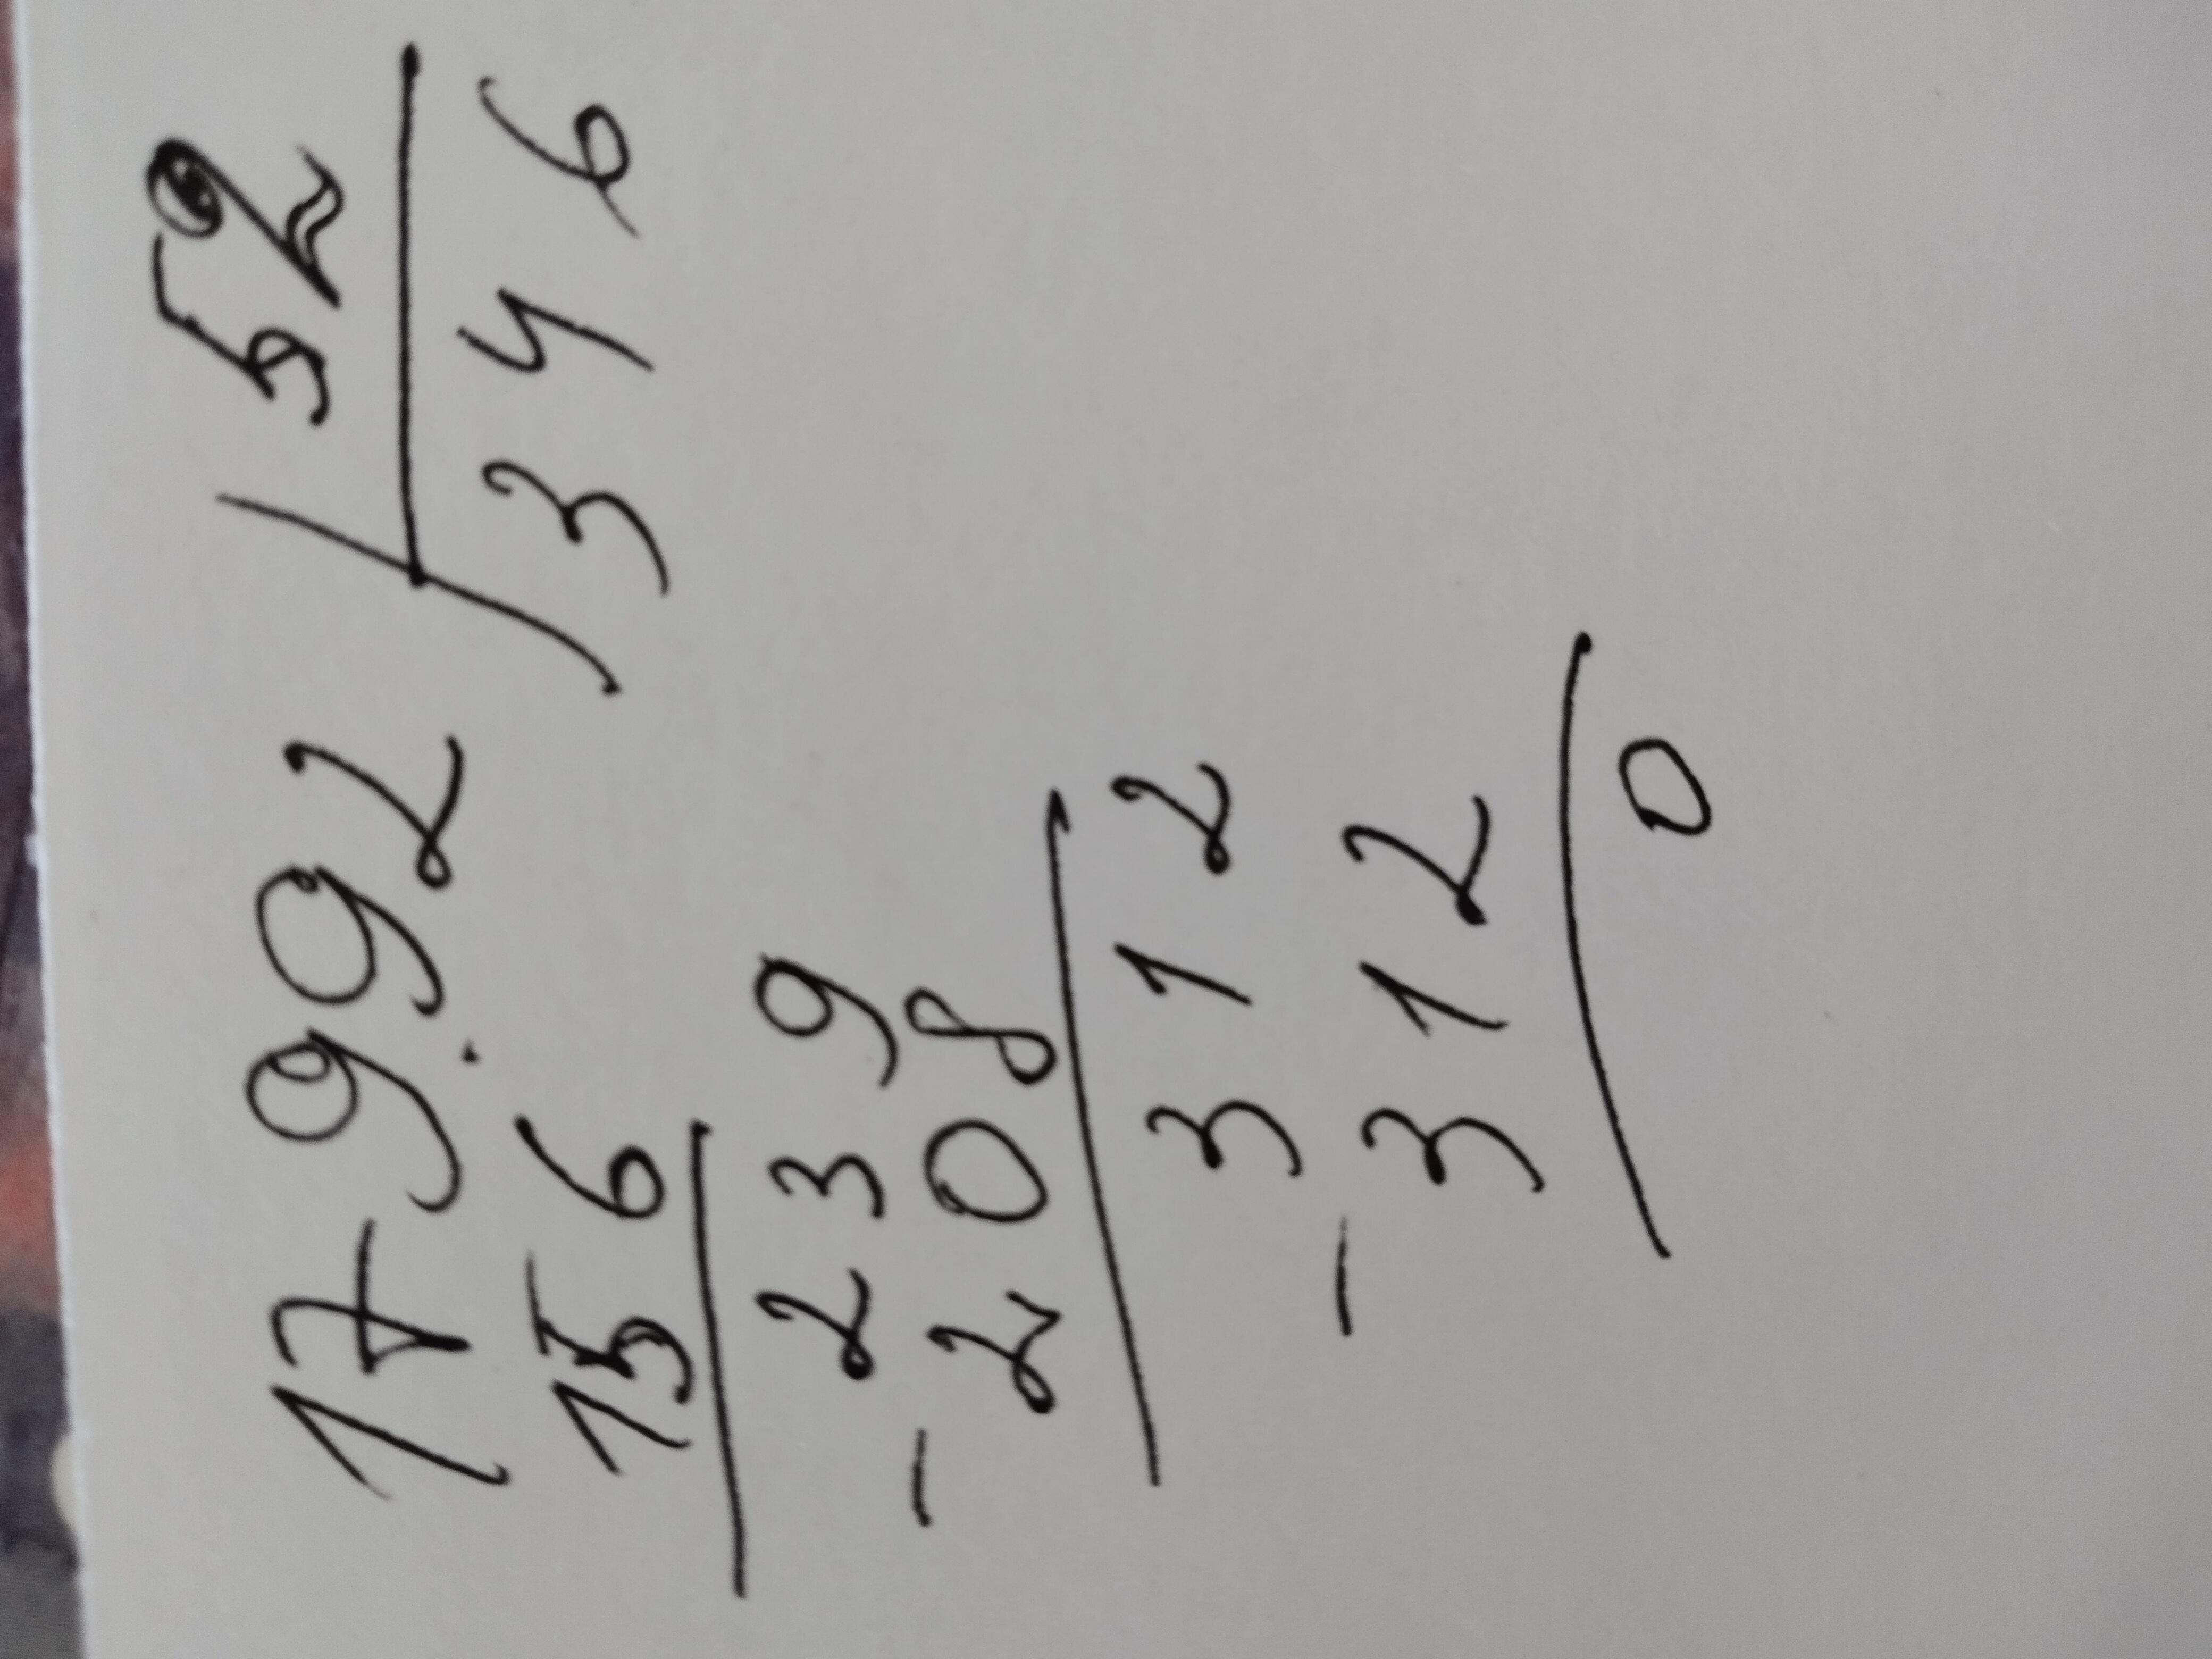 17992 52
156 346
239
- 208
312
- 312
0